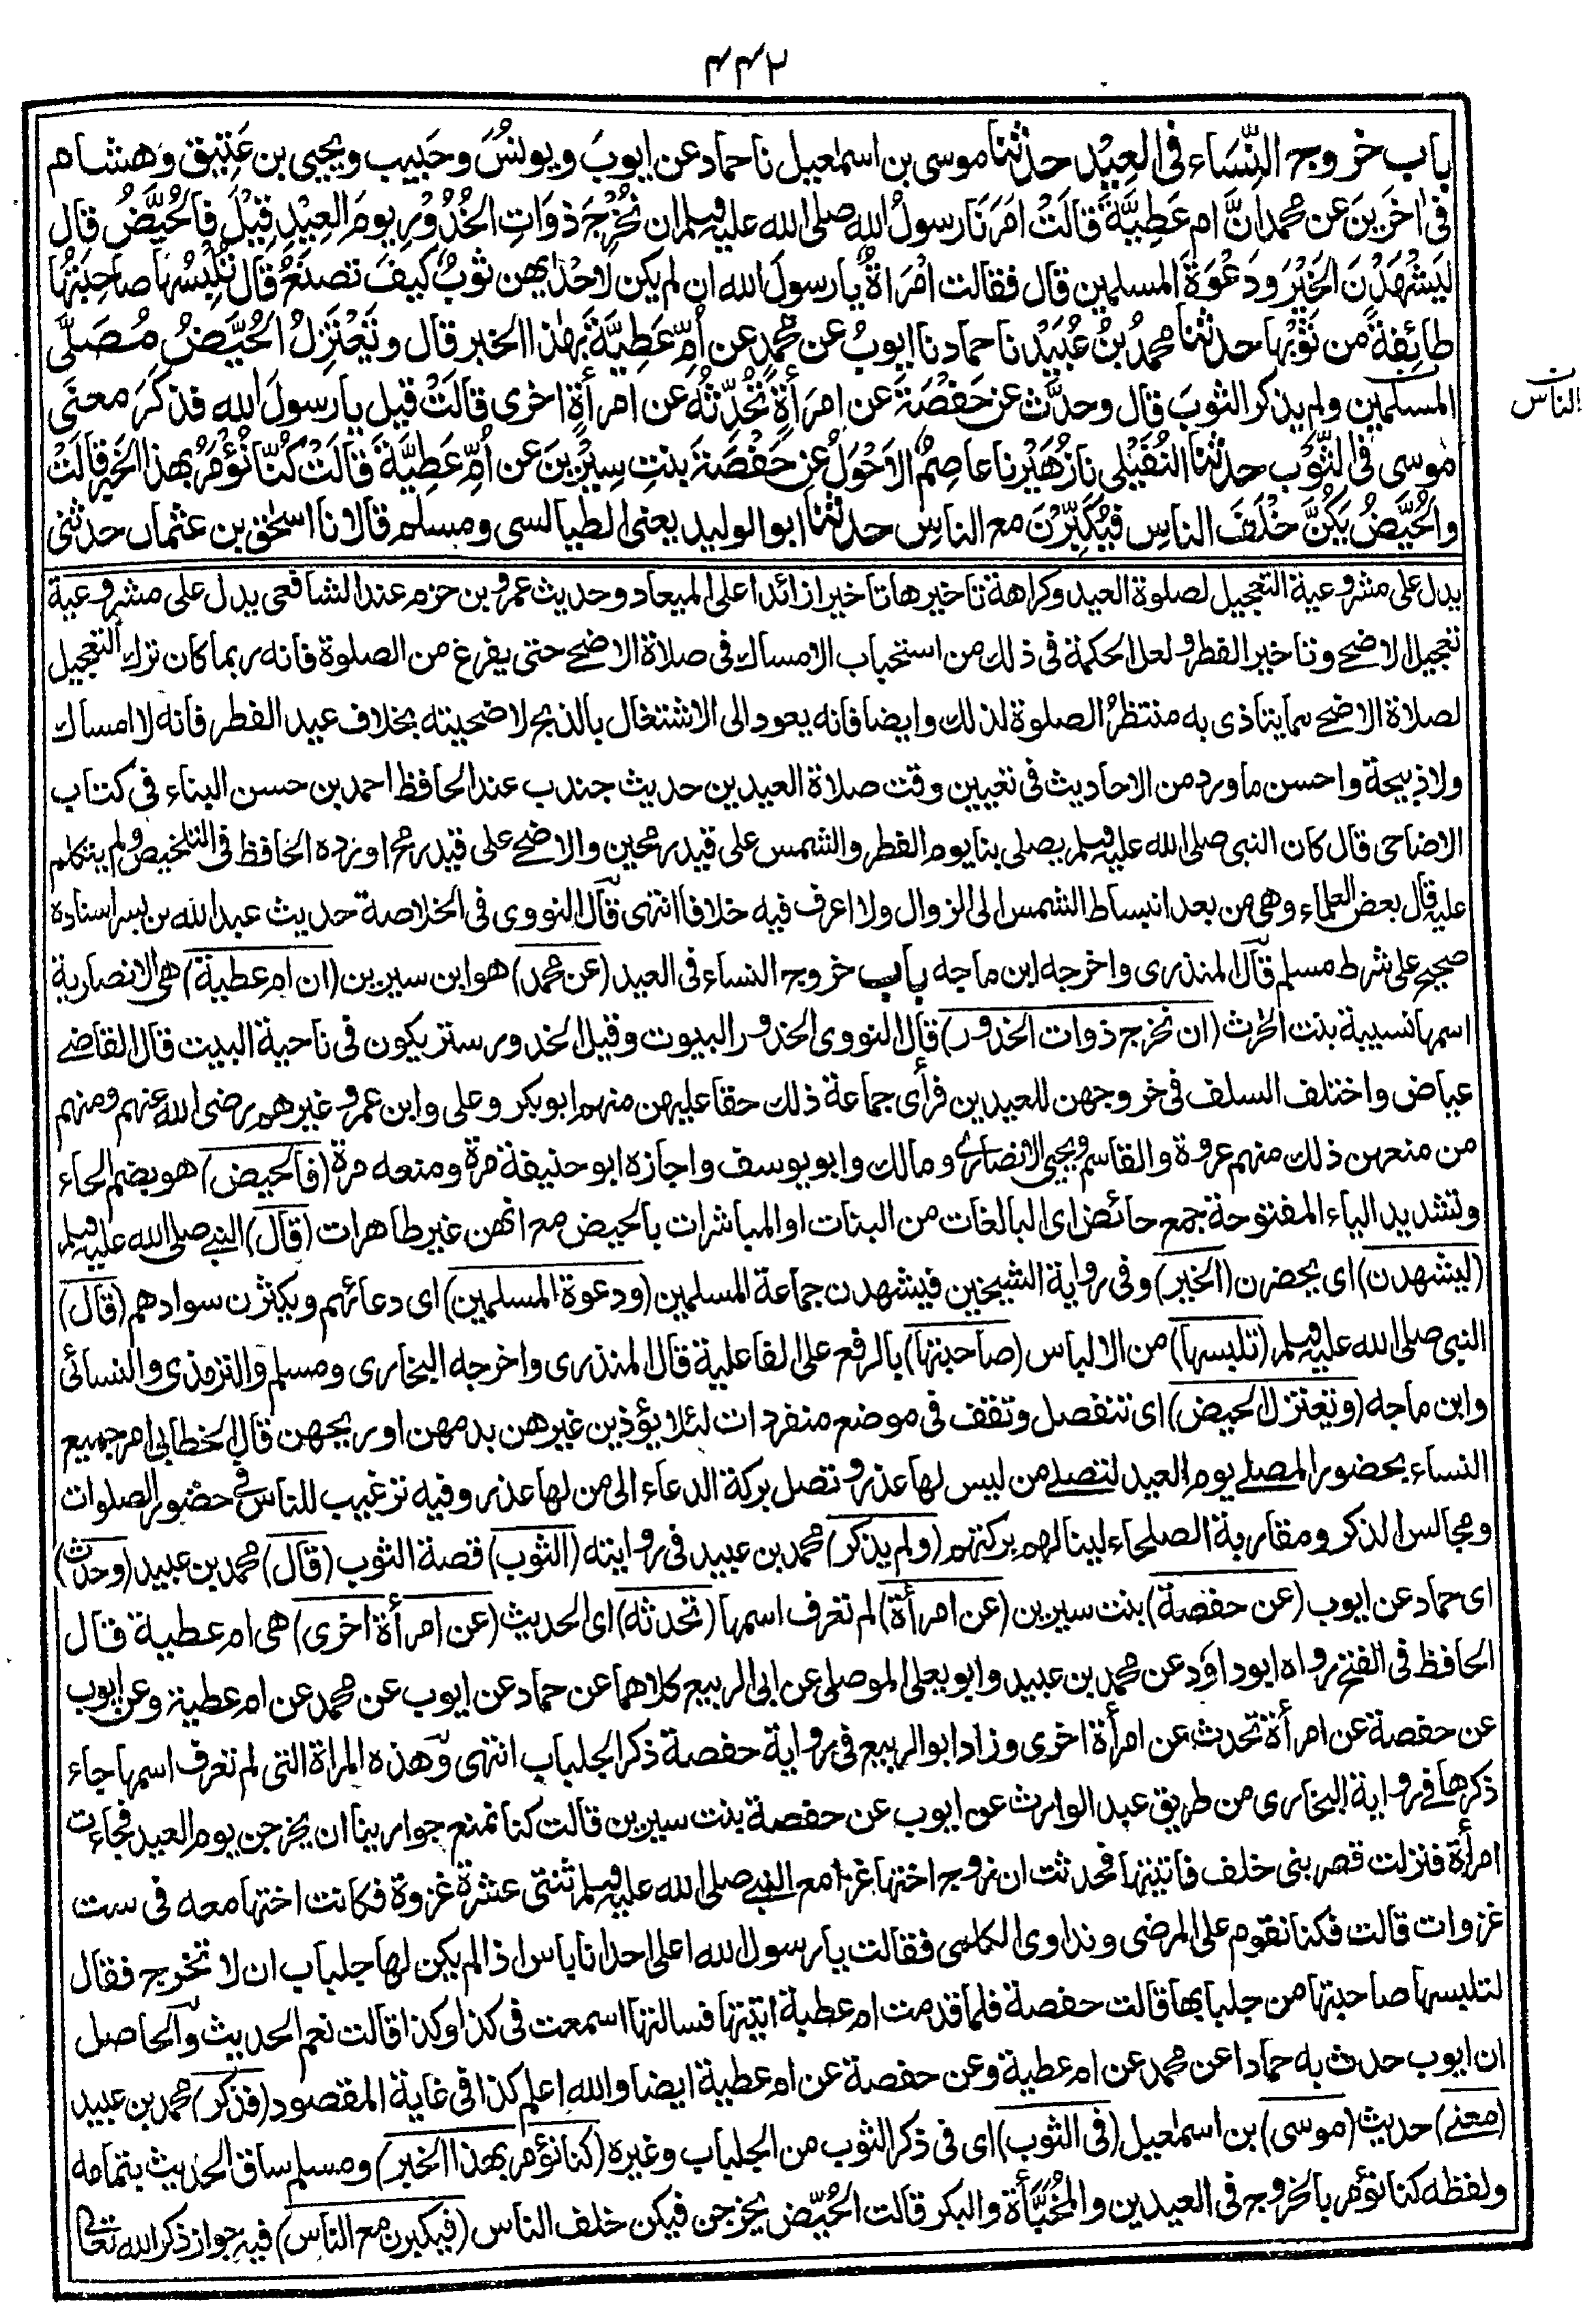 ٤٤٢
باب خروج النِّسَاء فی العِیْد حدثنا موسی بن اسمٰعیل نا حماد عن ایوبَ ویونسَ وحَبیب ویحیی بن عَتِیق وهشام
فی اٰخَرِینَ عن محمد انَّ ام عَطِیَّةَ قَالَتْ اَمَرَنَا رسولُ اللهِ صلی الله علیه وسلم ان نُخْرِجَ ذَوَاتِ الخُدُوْرِ یومَ العِیْدِ قِیْلَ فَالْحُیَّضُ قال
لِیَشْهَدْنَ الخَیْرَ ودَعْوَةَ المسلمین قال فقالت امْرَاَةٌ یا رسولَ الله ان لم یکن لاحْدٰیهن ثوبٌ کیفَ تصنَعُ قال تُلْبِسُها صاحِبَتُها
طائِفَةً من ثَوْبِها حدثنا محمدُ بنُ عُبَیْد نا حماد نا ایوبُ عن محمد عن اُمِّ عَطِیَّةَ بهٰذا الخبر قال وتَعْتَزِلُ الحُیَّضُ مُصَلَّی
المسلمین ولم یذکر الثوبَ قال وحدَّث عن حَفْصَةَ عن امرَأةٍ تُحَدِّثُهُ عن امرأةٍ اخری قالَتْ قیل یا رسولَ اللهِ فذکَرَ معنَی
الناس
موسی فی الثَّوْب حدثنا النُّفَیْلی نا زُهَیْر نا عاصِمٌ الاَحْوَلُ عن حَفْصَةَ بنتِ سِیْرِیْنَ عن اُمِّ عَطِیَّةَ قالَتْ کُنَّا نُؤْمَرُ بهذا الخَبرِ قالَتْ
والحُیَّضُ یَکُنَّ خَلْفَ الناسِ فیُکَبِّرْنَ مع الناسِ حدثنا ابو الولید یعنی الطیالسی ومسلم قالا نا اسحٰق بن عثمان حدثنی
یدل علی مشروعیة التعجیل لصلوة العید وکراهة تاخیرها تاخیرا زائدا علی المیعاد وحدیث عمرو بن حزم عند الشافعی یدل علی مشروعیة
تعجیل الاضحے وتاخیر الفطر ولعل الحکمة فی ذلک من استحباب الامساک فی صلاة الاضحے حتی یفرغ من الصلوة فانه ربما کان ترک التعجیل
لصلاة الاضحے مما یتاذی به منتظرُ الصلوة لذلک وایضا فانه یعود الی الاشتغال بالذبح لاضحیته بخلاف عید الفطر فانه لا امساک
ولا ذبیحة واحسن ما ورد من الاحادیث فی تعیین وقت صلاة العیدین حدیث جندب عند الحافظ احمد بن حسن البناء فی کتاب
الاضاحی قال کان النبی صلی الله علیه وسلم یصلی بنا یوم الفطر والشمس علی قید رمحین والاضحے علی قید رمح اورده الحافظ فی التلخیص ولم یتکلم
علیه قال بعض العلماء وهی من بعد انبساط الشمس الی الزوال ولا اعرف فیه خلافا انتهی قال النووی فی الخلاصة حدیث عبد الله بن بسر اسناده
صحیح علی شرط مسلم قال المنذری واخرجه ابن ماجه باب خروج النساء فی العید (عن محمد) هو ابن سیرین (ان ام عطیة) هی الانصاریة
اسمها نسیبة بنت الحٰرث (ان نخرج ذوات الخدور) قال النووی الخدور البیوت وقیل الخدور ستر یکون فی ناحیة البیت قال القاضے
عیاض واختلف السلف فی خروجهن للعیدین فرأی جماعة ذلک حقا علیهن منهم ابوبکر وعلی وابن عمر وغیرهم رضی الله عنهم ومنهم
من منعهن ذلک منهم عروة والقاسم ویحیی الانصارے ومالک وابو یوسف واجازه ابو حنیفة مرة ومنعه مرة (فالحیض) هو بضم الحاء
وتشدید الیاء المفتوحة جمع حائض ای البالغات من البنات او المباشرات بالحیض مع انهن غیر طاهرات (قال) النبے صلی الله علیه وسلم
(لیشهدن) ای یحضرن (الخیر) وفی روایة الشیخین فیشهدن جماعة المسلمین (ودعوة المسلمین) ای دعائهم ویکثرن سوادهم (قال)
النبی صلی الله علیه وسلم (تلبسها) من الالباس (صاحبتها) بالرفع علی الفاعلیة قال المنذری واخرجه البخاری ومسلم والترمذی والنسائی
وابن ماجه (وتعتزل الحیض) ای تنفصل وتقف فی موضع منفردات لئلا یؤذین غیرهن بدمهن او ریحهن قال الخطابی امر جمیع
النساء بحضور المصلے یوم العید لتصلے من لیس لها عذر وتصل برکة الدعاء الی من لها عذر وفیه ترغیب للناس فی حضور الصلوات
ومجالس الذکر ومقاربة الصلحاء لینالهم برکتهم (ولم یذکر) محمد بن عبید فی روایته (الثوب) قصة الثوب (قال) محمد بن عبید (وحدث)
ای حماد عن ایوب (عن حفصة) بنت سیرین (عن امرأة) لم تعرف اسمها (تحدثه) ای الحدیث (عن امرأة اخری) هی ام عطیة قال
الحافظ فی الفتح رواه ابو داود عن محمد بن عبید وابو یعلی الموصلی عن ابی الربیع کلاهما عن حماد عن ایوب عن محمد عن ام عطیة وعن ایوب
عن حفصة عن امرأة تحدث عن امرأة اخری وزاد ابو الربیع فی روایة حفصة ذکر الجلباب انتهی وهذه المراة التی لم تعرف اسمها جاء
ذکرها فے روایة البخاری من طریق عبد الوارث عن ایوب عن حفصة بنت سیرین قالت کنا نمنع جوارینا ان یخرجن یوم العید فجاءت
امرأة فنزلت قصر بنی خلف فاتیتها فحدثت ان زوج اختها غزا مع النبے صلی الله علیه وسلم ثنتی عشرة غزوة فکانت اختها معه فی ست
غزوات قالت فکنا نقوم علی المرضی ونداوی الکلمی فقالت یا رسول الله اعلی احدانا باس اذا لم یکن لها جلباب ان لا تخرج فقال
لتلبسها صاحبتها من جلبابها قالت حفصة فلما قدمت ام عطیة اتیتها فسالتها اسمعت فی کذا وکذا قالت نعم الحدیث والحاصل
ان ایوب حدث به حمادا عن محمد عن ام عطیة وعن حفصة عن ام عطیة ایضا والله اعلم کذا فی غایة المقصود (فذکر) محمد بن عبید
(معنے) حدیث (موسی) بن اسمٰعیل (فی الثوب) ای فی ذکر الثوب من الجلباب وغیره (کنا نؤمر بهذا الخبر) ومسلم ساق الحدیث بتمامه
ولفظه کنا نؤمر بالخروج فی العیدین والمُخَبَّأة والبکر قالت الحُیَّض یخرجن فیکن خلف الناس (فیکبرن مع الناس) فیه جواز ذکر الله تعالی